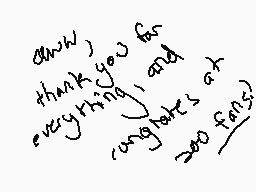 aww,
thank you for
everything, and
congrates at
300 fans!